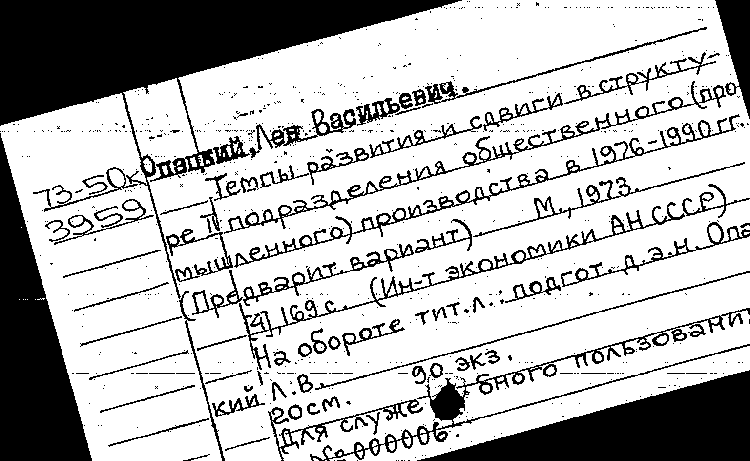 73-50к
3959
Опацкий, Лев Васильевич.
Темпы развития и сдвиги в структу-
ре II подразделения общественного (про
мышленного) производства в 1976-1990 гг.
(Предварит. вариант). М., 1973.
[4], 169 с. (Ин-т экономики АН СССР)
На обороте тит.л.: подгот. д.э.н. Опа
кий Л.В.
20см. 90 экз.
Для служе бного пользовани
№ 000006.